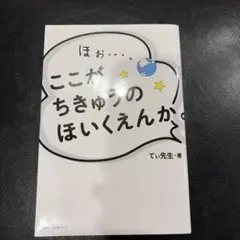 ほぉ…、
ここが
ちきゅうの
ほいくえんか。
てぃ先生・著